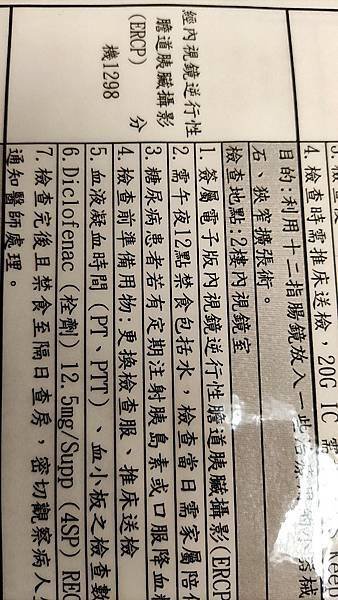 經內視鏡逆行性
膽道胰臟攝影
(ERCP) 分
機1298
4. 檢查時需推床送檢，20G IC 需
目的:利用十二指腸鏡放入一些治療
石、狹窄擴張術。
檢查地點 2樓內視鏡室
1. 簽屬電子版內視鏡逆行性膽道胰臟攝影(ERCP
2. 需午夜12點禁食包括水，檢查當日需家屬陪
3. 糖尿病患者若有定期注射胰島素或口服降血
4. 檢查前準備用物:更換檢查服、推床送檢
5. 血液凝血時間 (PT、PTT)、血小板之檢查數
6. Diclofenac (栓劑) 12.5mg/Supp (4SP) REC
7. 檢查完後且禁食至隔日查房，密切觀察病人
通知醫師處理。